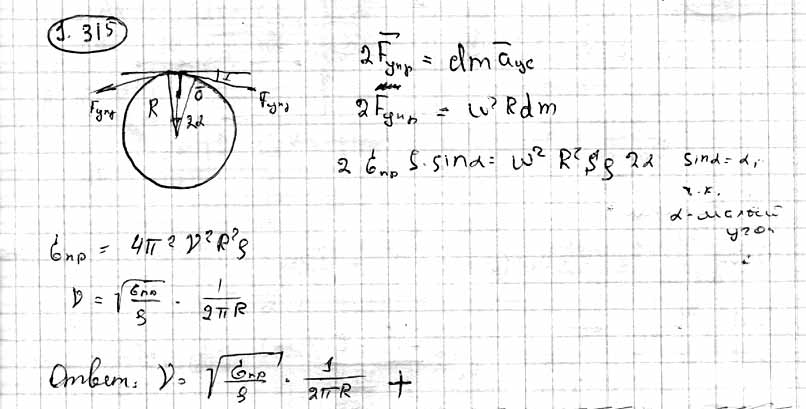 1.315
2F̅упр = dm a̅цс
2F̅упр = ω² R dm
Fупр R a̅ 2α Fупр α
2 σпр S · sinα = ω² R² S ρ 2α sinα = α,
т.к.
α - малый
угол
σпр = 4π² ν² R² ρ
ν = √(σпр/ρ) · 1/(2πR)
Ответ: ν = √(σпр/ρ) · 1/(2πR) +